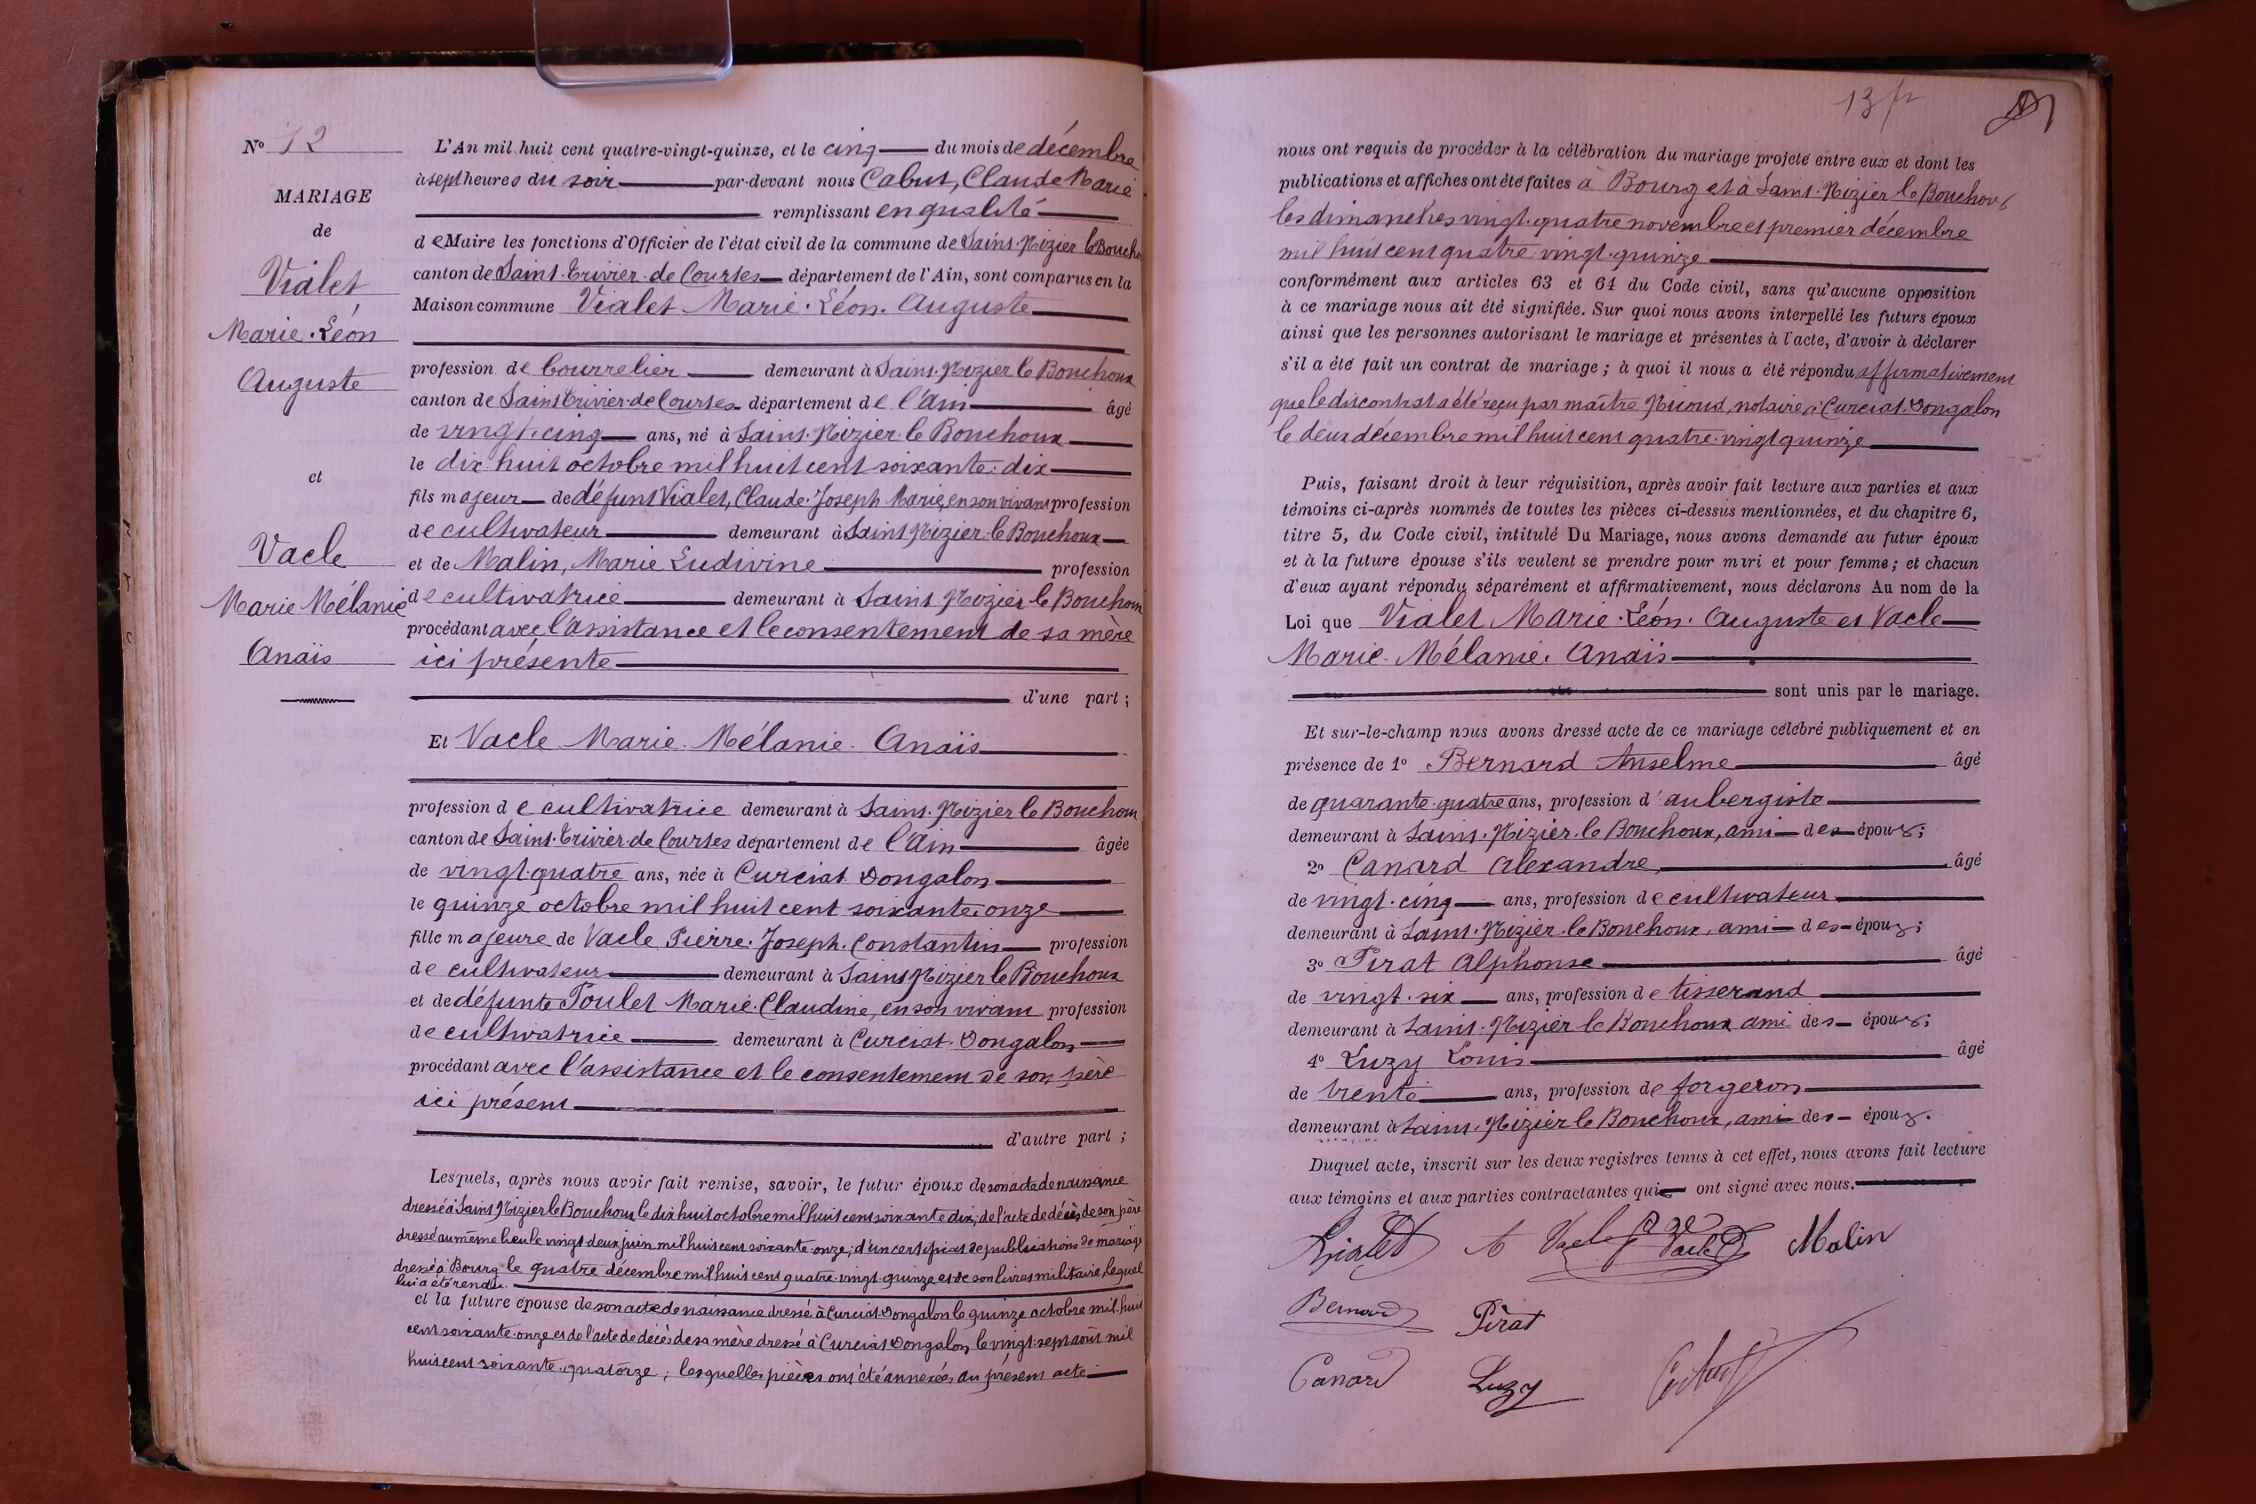 N° 12
MARIAGE
de
Vialet
Marie. Léon
Auguste
et
Vacle
Marie Mélanie
Anaïs
L'An mil huit cent quatre-vingt-quinze, et le cinq du mois de décembre
à sept heures du soir par-devant nous Cabut, Claude Marie
remplissant en qualité
de Maire les fonctions d'Officier de l'état civil de la commune de Saint-Nizier le Boucho
canton de Saint-Trivier-de Courtes département de l'Ain, sont comparus en la
Maison commune Vialet Marie. Léon. Auguste
profession de bourrelier demeurant à Saint-Nizier le Bouchoux
canton de Saint Trivier-de Courtes département de l'Ain âgé
de vingt-cinq ans, né à Saint-Nizier-le Bouchoux
le dix-huit octobre mil huit cent soixante-dix
fils majeur de défunt Vialet, Claude-Joseph Marie, en son vivant profession
de cultivateur demeurant à Saint Nizier-le Bouchoux
et de Malin, Marie Ludivine profession
de cultivatrice demeurant à Saint Nizier le Bouchoux
procédant avec l'assistance et le consentement de sa mère
ici présente
d'une part ;
Et Vacle Marie. Mélanie. Anaïs
profession de cultivatrice demeurant à Saint-Nizier le Bouchoux
canton de Saint-Trivier de Courtes département de l'Ain âgée
de vingt-quatre ans, née à Curciat Dongalon
le quinze octobre mil huit cent soixante-onze
fille majeure de Vacle Pierre. Joseph. Constantin profession
de cultivateur demeurant à Saint Nizier le Bouchoux
et de défunte Poulet Marie. Claudine, en son vivant profession
de cultivatrice demeurant à Curciat-Dongalon
procédant avec l'assistance et le consentement de son père
ici présent
d'autre part ;
Lesquels, après nous avoir fait remise, savoir, le futur époux de son acte de naissance
dressé à Saint Nizier le Bouchoux le dix huit octobre mil huit cent soixante dix, de l'acte de décès de son père
dressé au même lieu le vingt-deux juin mil huit cent soixante-onze; d'un certificat de publications de mariage
dressé à Bourg le quatre décembre mil huit cent quatre-vingt-quinze et de son livret militaire, lequel
lui a été rendu.
et la future épouse de son acte de naissance dressé à Curciat-Dongalon le quinze octobre mil huit
cent soixante-onze et de l'acte de décès de sa mère dressé à Curciat Dongalon le vingt-sept août mil
huit cent soixante-quatorze; lesquelles pièces ont été annexées au présent acte
13 fr
nous ont requis de procéder à la célébration du mariage projeté entre eux et dont les
publications et affiches ont été faites à Bourg et à Saint-Nizier le Bouchoux
les dimanches vingt-quatre novembre et premier décembre
mil huit cent quatre-vingt-quinze
conformément aux articles 63 et 64 du Code civil, sans qu'aucune opposition
à ce mariage nous ait été signifiée. Sur quoi nous avons interpellé les futurs époux
ainsi que les personnes autorisant le mariage et présentes à l'acte, d'avoir à déclarer
s'il a été fait un contrat de mariage ; à quoi il nous a été répondu affirmativement
que le dit contrat a été reçu par maître Nicoud, notaire à Curciat-Dongalon
le deux décembre mil huit cent quatre-vingt quinze
Puis, faisant droit à leur réquisition, après avoir fait lecture aux parties et aux
témoins ci-après nommés de toutes les pièces ci-dessus mentionnées, et du chapitre 6,
titre 5, du Code civil, intitulé Du Mariage, nous avons demandé au futur époux
et à la future épouse s'ils veulent se prendre pour mari et pour femme ; et chacun
d'eux ayant répondu séparément et affirmativement, nous déclarons Au nom de la
Loi que Vialet Marie. Léon. Auguste et Vacle
Marie. Mélanie. Anaïs
sont unis par le mariage.
Et sur-le-champ nous avons dressé acte de ce mariage célébré publiquement et en
présence de 1° Bernard Anselme âgé
de quarante-quatre ans, profession d'aubergiste
demeurant à Saint-Nizier-le Bouchoux, ami des époux;
2° Canard Alexandre, âgé
de vingt-cinq ans, profession de cultivateur
demeurant à Saint-Nizier-le Bouchoux, ami des époux;
3° Pirat Alphonse âgé
de vingt-six ans, profession de tisserand
demeurant à Saint-Nizier le Bouchoux ami des époux;
4° Luzy Louis âgé
de trente ans, profession de forgeron
demeurant à Saint-Nizier le Bouchoux, ami des époux.
Duquel acte, inscrit sur les deux registres tenus à cet effet, nous avons fait lecture
aux témoins et aux parties contractantes qui ont signé avec nous.
Vialet A Vacle Vacle Malin
Bernard Pirat
Canard Luzy Cabut